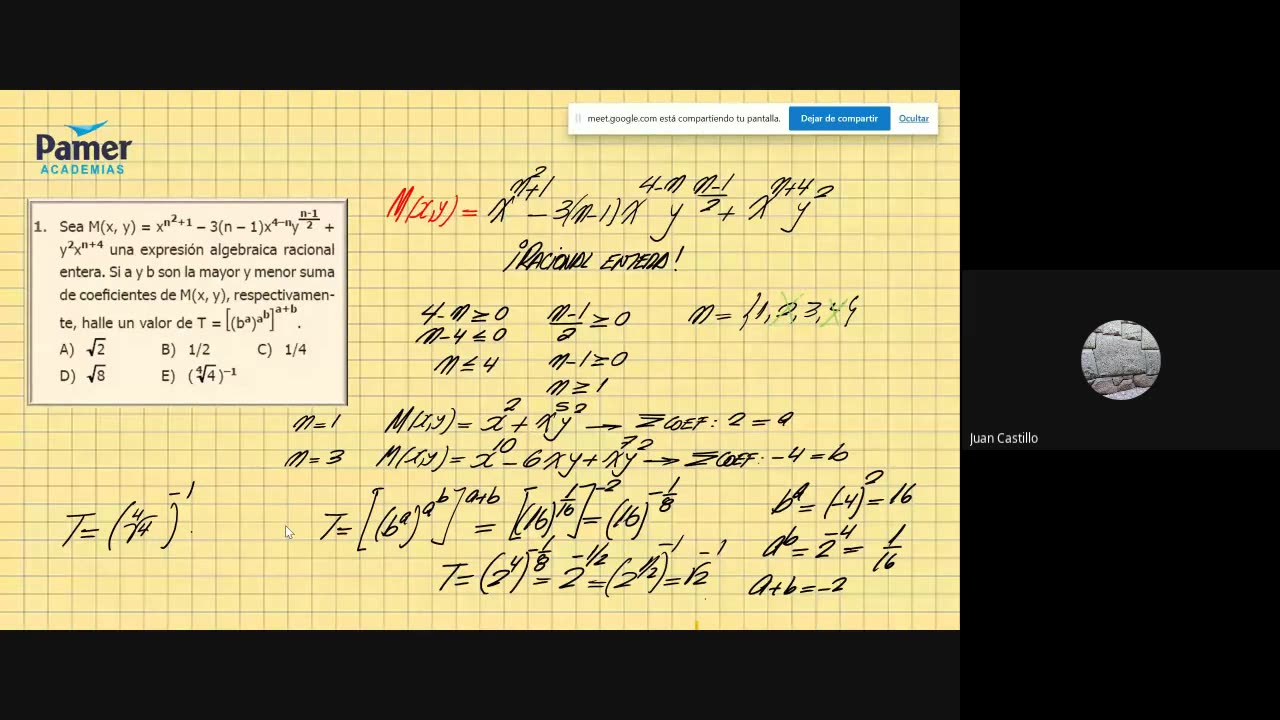 meet.google.com está compartiendo tu pantalla. Dejar de compartir Ocultar
Pamer
ACADEMIAS
1. Sea M(x, y) = x^(n²+1) – 3(n – 1)x^(4–n)y^((n-1)/2) +
y²x^(n+4) una expresión algebraica racional
entera. Si a y b son la mayor y menor suma
de coeficientes de M(x, y), respectivamen-
te, halle un valor de T = [(b^a)^(a^b)]^(a+b).
A) √2 B) 1/2 C) 1/4
D) √8 E) (∜4)^(–1)
M(x,y) = x^(n²+1) – 3(n-1)x^(4-n) y^((n-1)/2) + x^(n+4) y²
¡RACIONAL ENTERA!
4-n ≥ 0 (n-1)/2 ≥ 0 n = {1, 2, 3, 4}
n-4 ≤ 0
n ≤ 4 n-1 ≥ 0
n ≥ 1
n=1 M(x,y) = x² + x⁵y² → Σ COEF: 2 = a
n=3 M(x,y) = x¹⁰ - 6xy + x⁷y² → Σ COEF: -4 = b
T = [(b^a)^(a^b)]^(a+b) = [(16)^(1/16)]^(-2) = (16)^(-1/8)
b^a = (-4)² = 16
T = (∜4)^(-1).
a^b = 2^(-4) = 1/16
T = (2⁴)^(-1/8) = 2^(-1/2) = (2^(1/2))^(-1) = √2^(-1)
a+b = -2
Juan Castillo